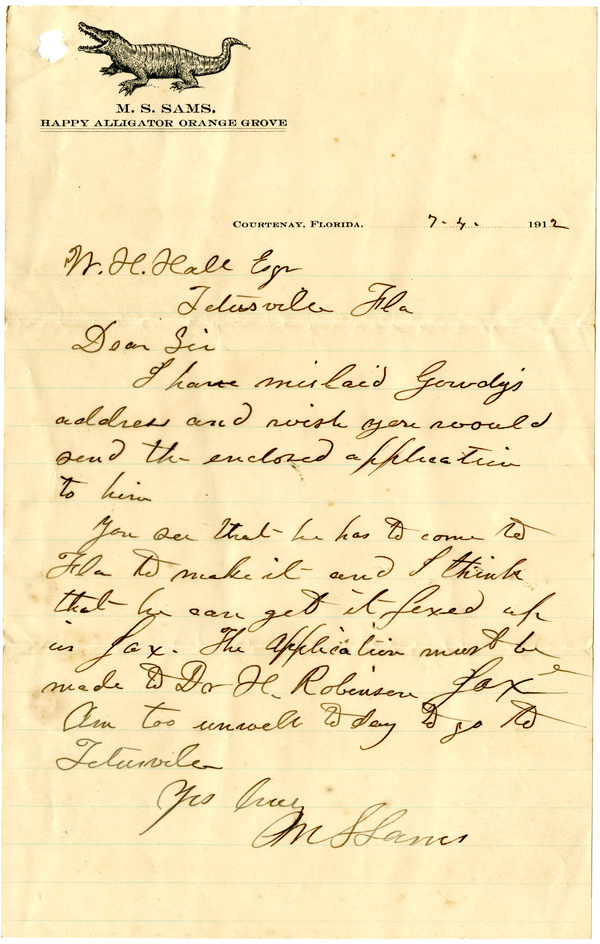 M. S. SAMS,
HAPPY ALLIGATOR ORANGE GROVE
COURTENAY, FLORIDA. 7-4. 1912
W. H. Hall Esqr
Titusville Fla
Dear Sir
I have mislaid Gowdy's
address and wish you would
send the enclosed application
to him
You see that he has to come to
Fla to make it and I think
that he can get it fixed up
in Jax. The application must be
made to Dr H. Robinson Jax
Am too unwell to day to go to
Titusville
Yrs truly
M S Sams